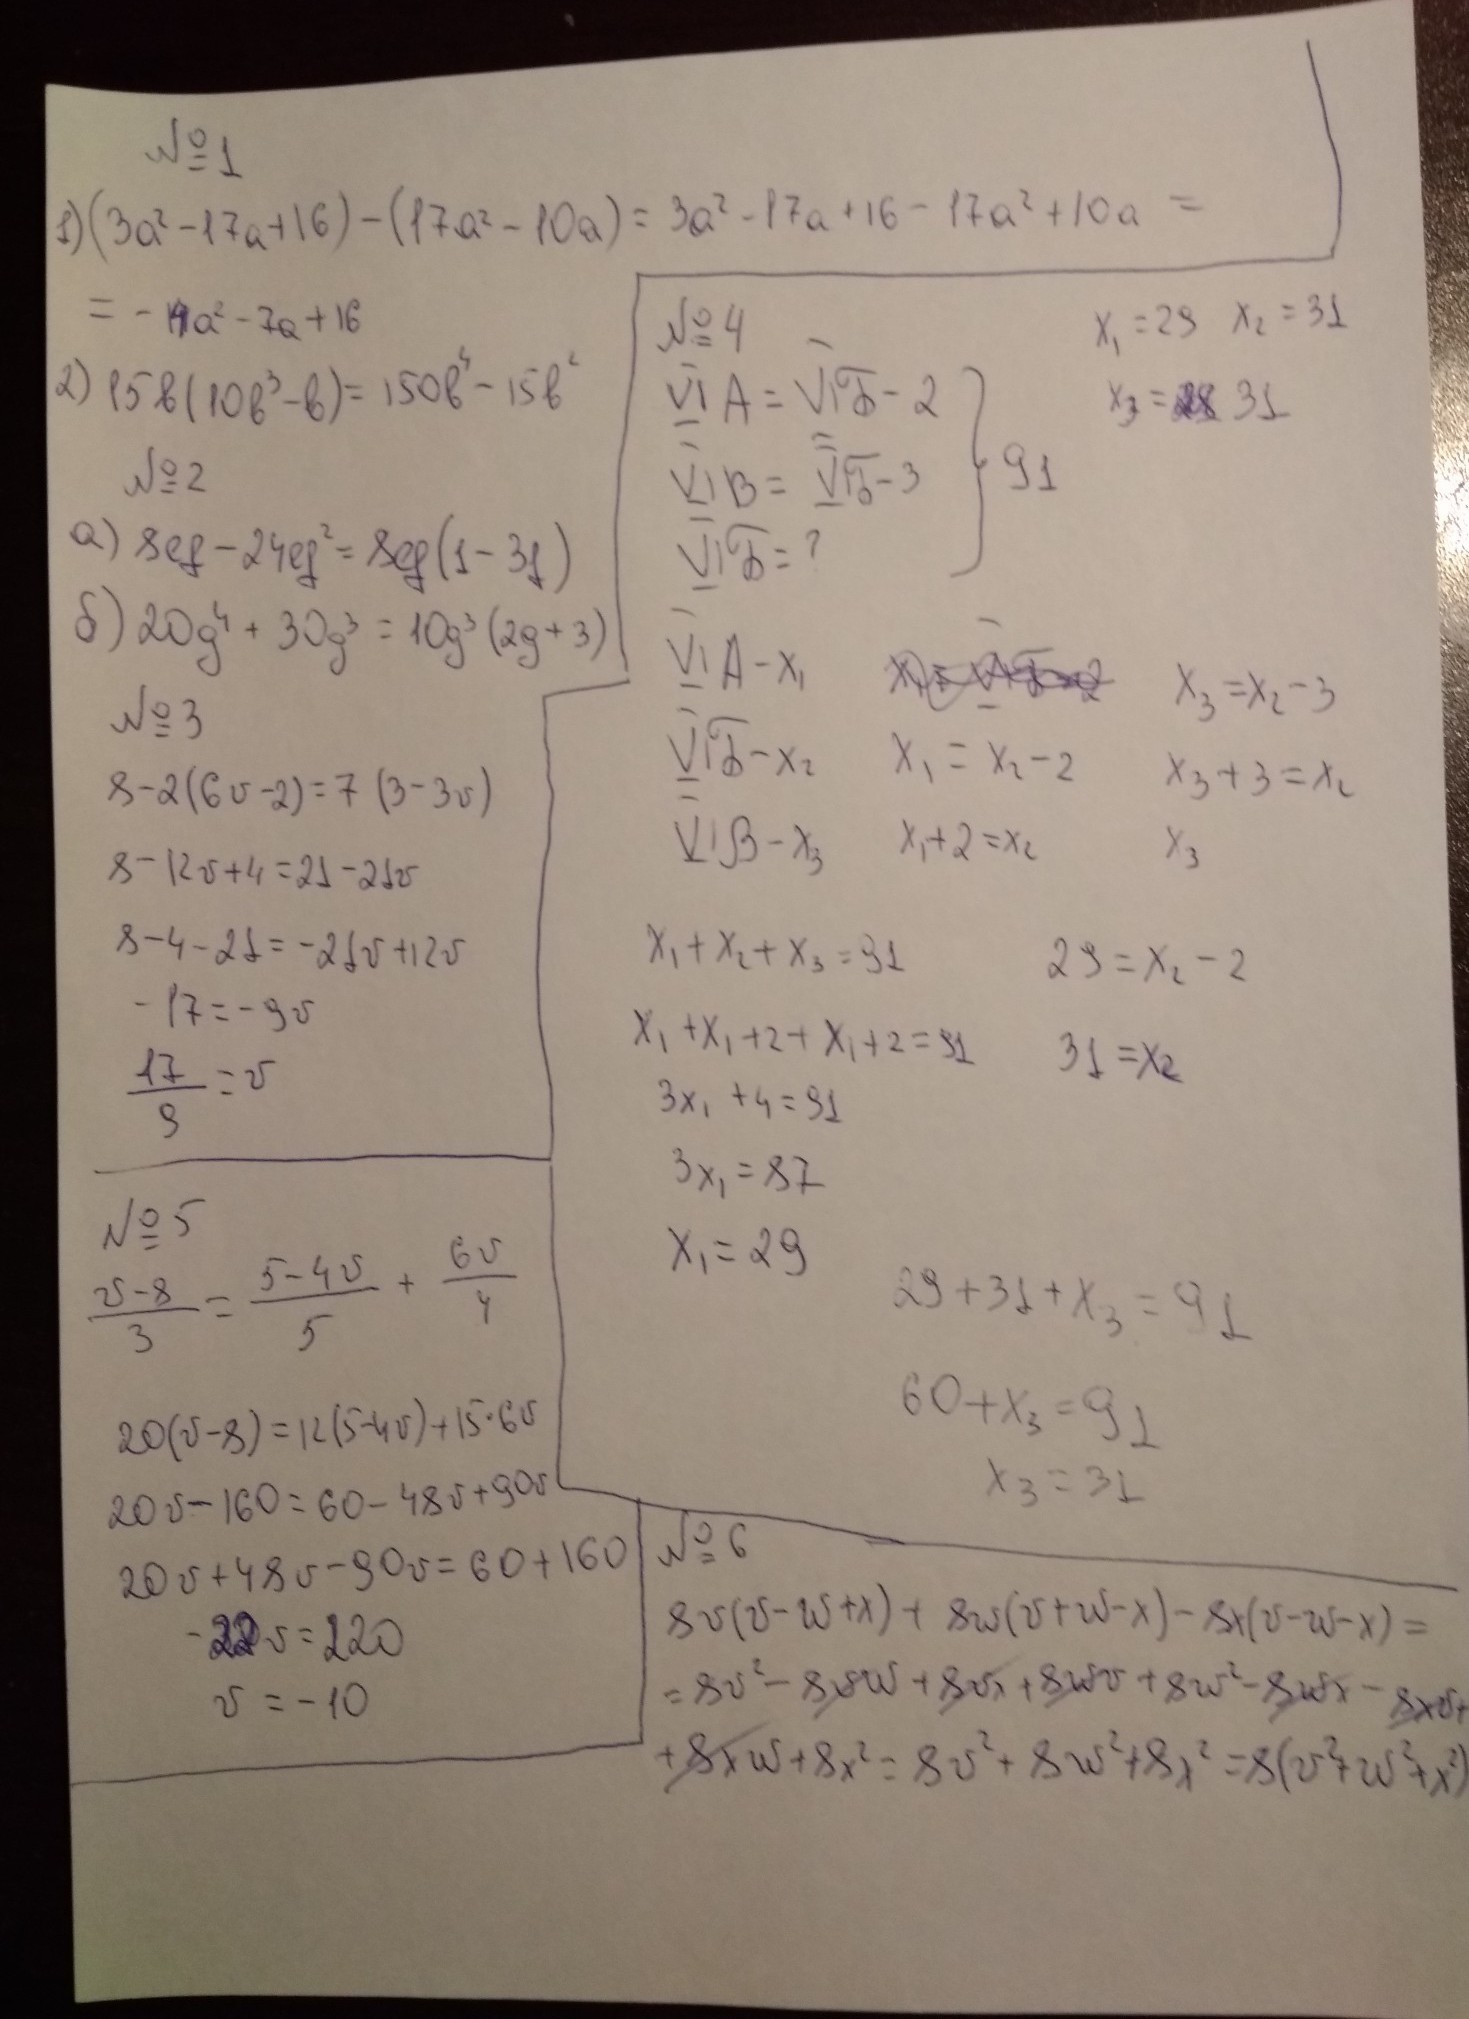 №1
1) (3a² - 17a + 16) - (17a² - 10a) = 3a² - 17a + 16 - 17a² + 10a =
= - 14a² - 7a + 16
2) 15b(10b³ - b) = 150b⁴ - 15b²
№2
а) 8ef - 24ef² = 8ef(1 - 3f)
б) 20g⁴ + 30g³ = 10g³(2g + 3)
№3
8 - 2(6v - 2) = 7 (3 - 3v)
8 - 12v + 4 = 21 - 21v
8 - 4 - 21 = - 21v + 12v
- 17 = - 9v
17/9 = v
№4
VIA = VIБ - 2
VIB = VIБ - 3
VIБ = ?
} 91
x₁ = 29 x₂ = 31
x₃ = 31
VIA - x₁
VIБ - x₂
VIB - x₃
x₁ = x₂ - 2
x₁ + 2 = x₂
x₃ = x₂ - 3
x₃ + 3 = x₂
x₃
x₁ + x₂ + x₃ = 91
x₁ + x₁ + 2 + x₁ + 2 = 91
3x₁ + 4 = 91
3x₁ = 87
x₁ = 29
29 = x₂ - 2
31 = x₂
29 + 31 + x₃ = 91
60 + x₃ = 91
x₃ = 31
№5
(v - 8)/3 = (5 - 4v)/5 + 6v/4
20(v - 8) = 12(5 - 4v) + 15·6v
20v - 160 = 60 - 48v + 90v
20v + 48v - 90v = 60 + 160
- 22v = 220
v = - 10
№6
8v(v - w + x) + 8w(v + w - x) - 8x(v - w - x) =
= 8v² - 8vw + 8vx + 8wv + 8w² - 8wx - 8xv +
+ 8xw + 8x² = 8v² + 8w² + 8x² = 8(v² + w² + x²)